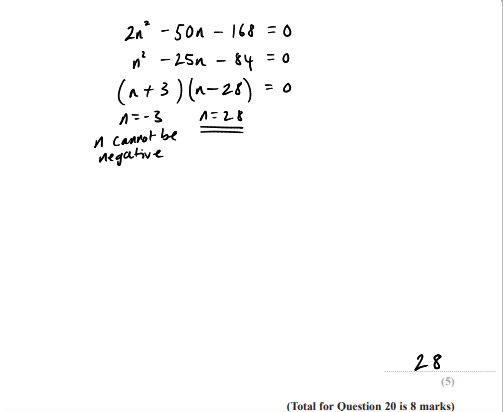 2n² - 50n - 168 = 0
n² - 25n - 84 = 0
(n + 3)(n - 28) = 0
n = -3 n = 28
n cannot be
negative
28
(5)
(Total for Question 20 is 8 marks)